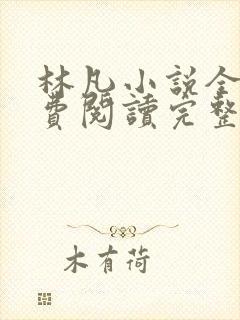 林凡小説全
費閱讀完整
木有荷